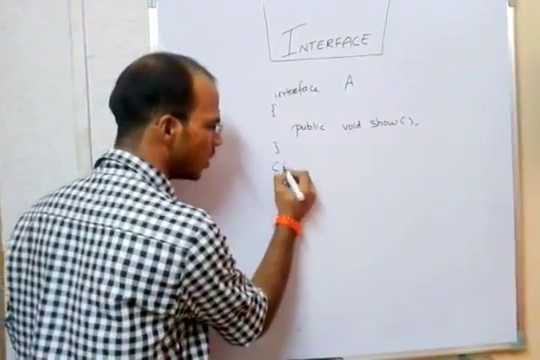 INTERFACE
interface A
{
public void show();
}
Cl